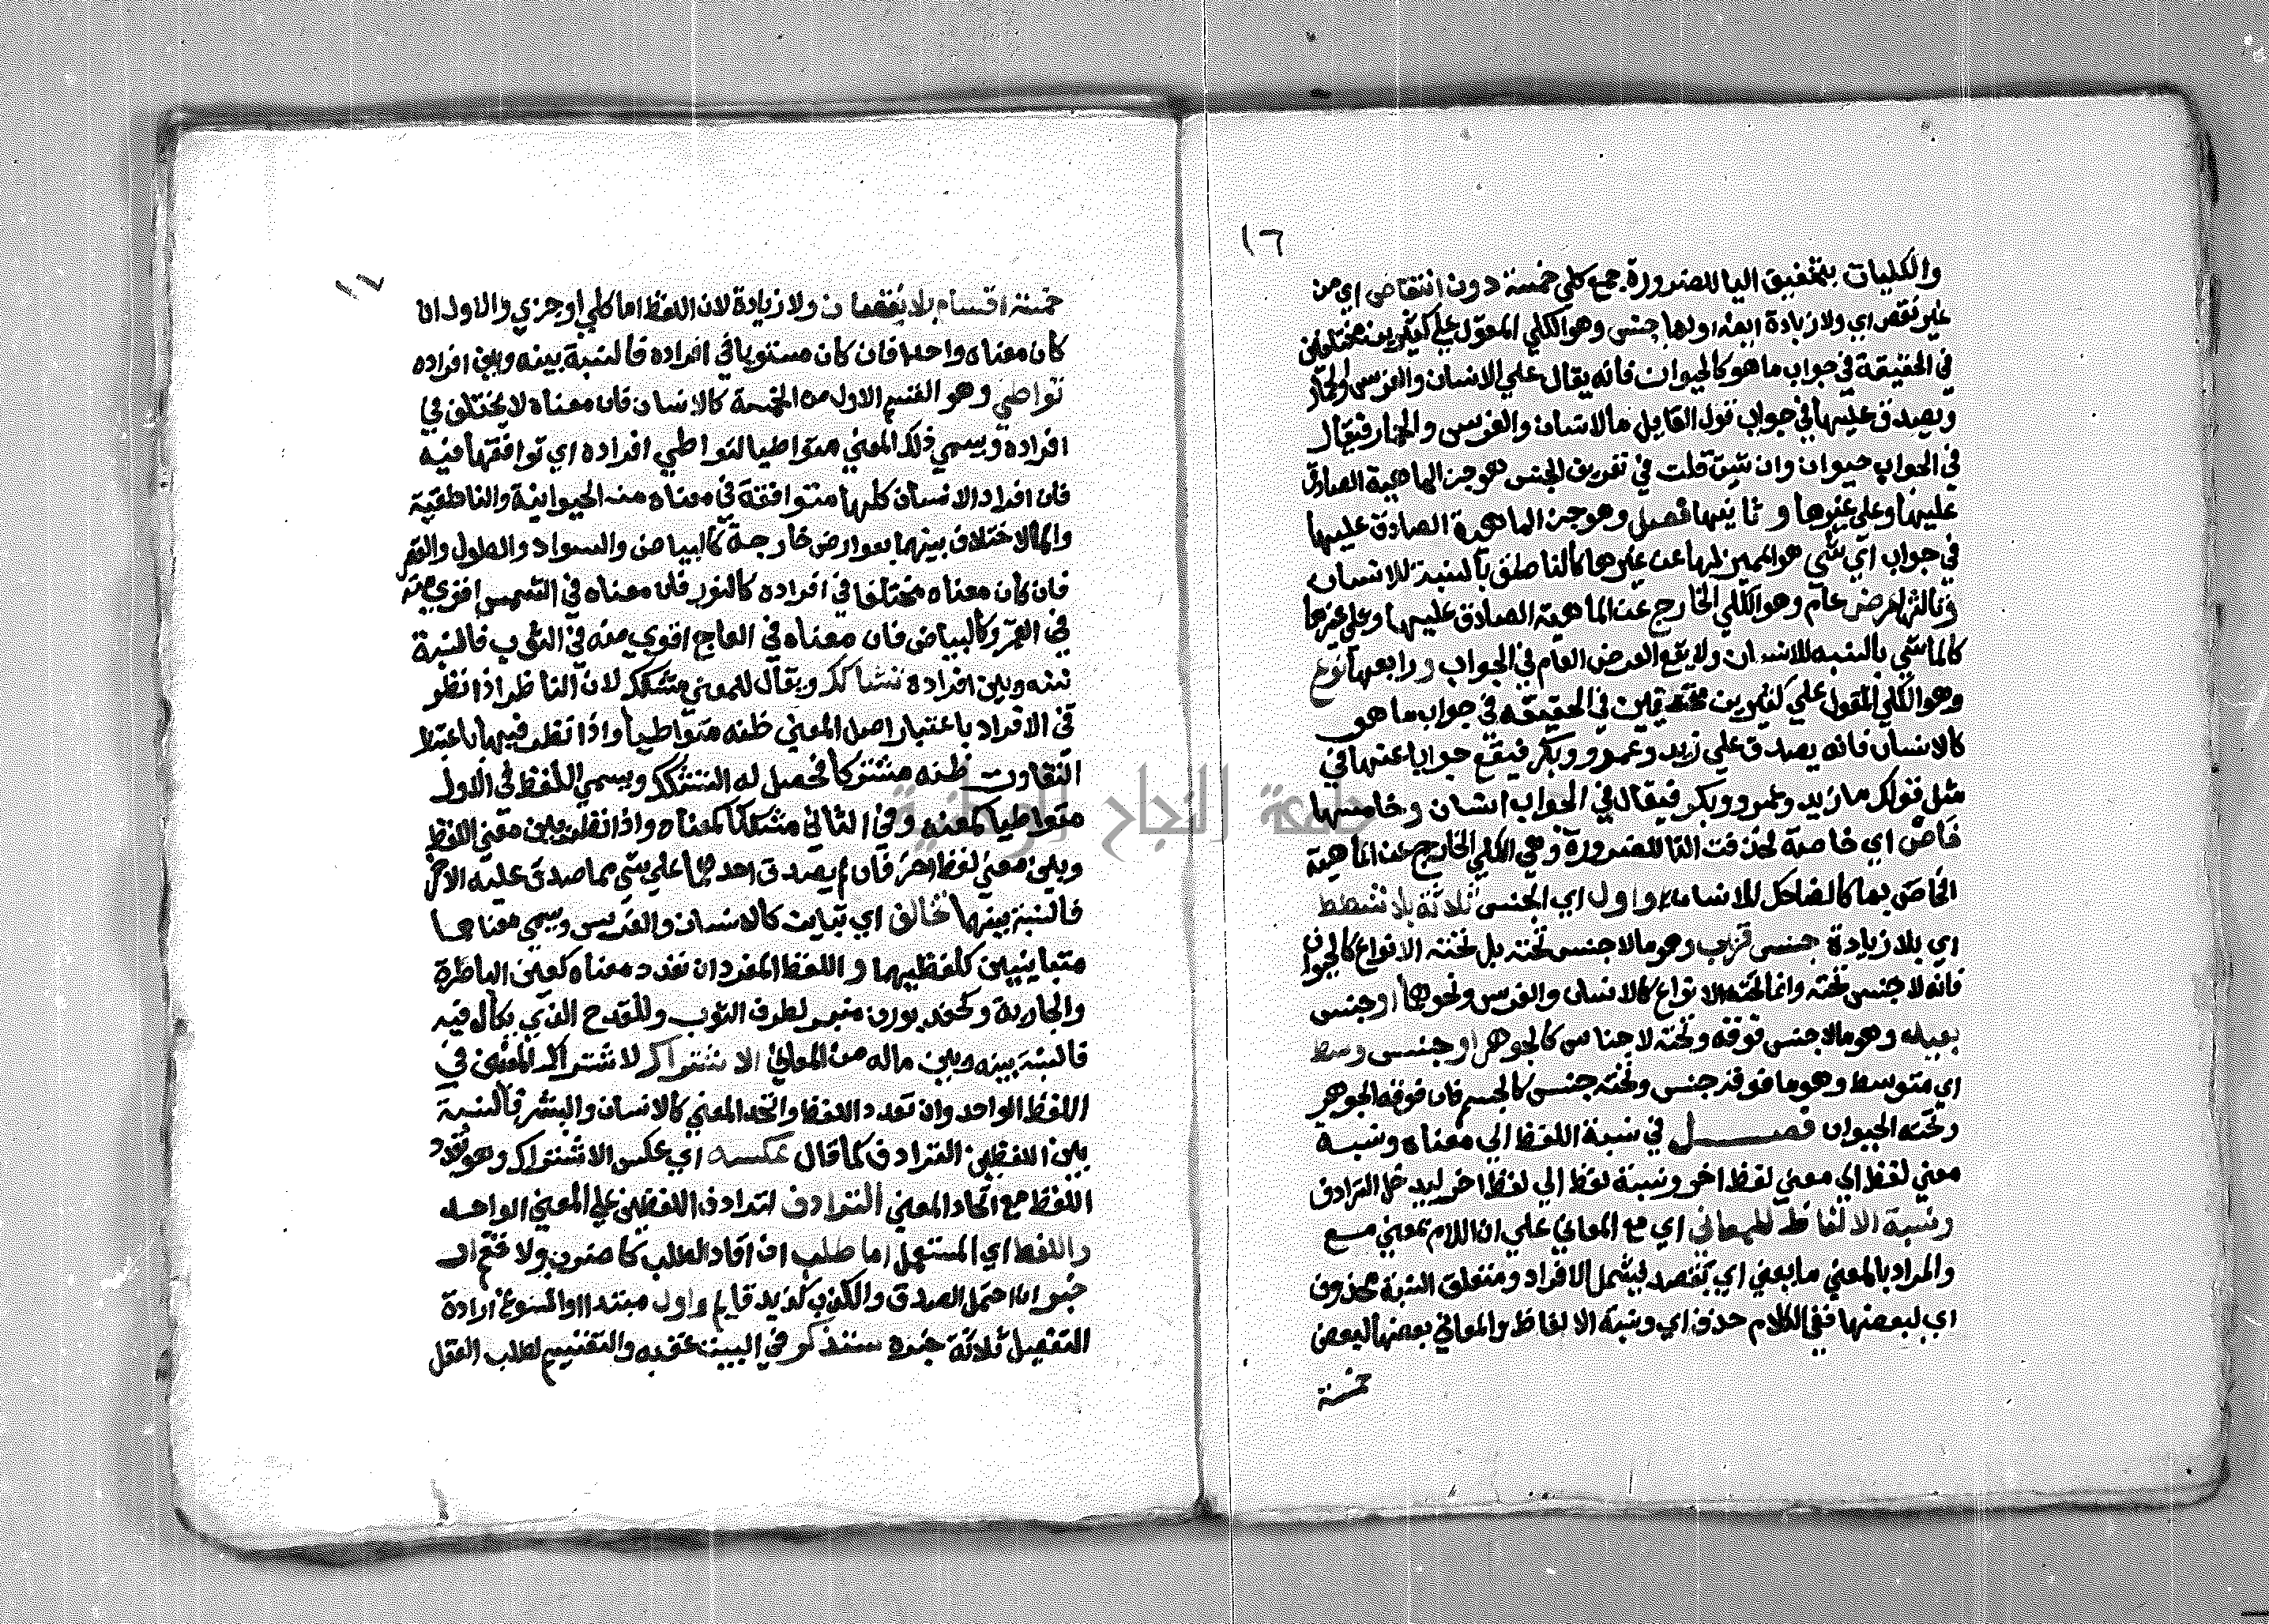 ١٦
والكليات بتخفيف اليا للضرورة جمع كلي خمسة دون انتقاص اي من
غير نقص اي ولا زيادة ايضا اولها جنس وهو الكلي المقول علي كثيرين مختلفين
في الحقيقة في جواب ما هو كالحيوان فانه يقال علي الانسان والفرس والحمار
ويصدق عليها في جواب قول القايل ما الانسان والفرس والحمار فيقال
في الجواب حيوان وان شئت قلت في تعريف الجنس هو جزء الماهية الصادق
عليها وعلي غيرها و ثانيها فصل وهو جزء الماهية الصادق عليها
في جواب اي شي هو المميز لها عن غيرها كالناطق بالنسبة للانسان
وثالثها عرض عام وهو الكلي الخارج عن الماهية الصادق عليها وعلي غيرها
كالماشي بالنسبه للانسان ولا يقع العرض العام في الجواب ورابعها نوع
وهو الكلي المقول علي كثيرين متفقين في الحقيقه في جواب ما هو
كالانسان فانه يصدق علي زيد وعمرو وبكر فيقع جوابا عنها في
مثل قولك ما زيد وعمرو وبكر فيقال في الجواب انسان وخامسها
خاص اي خاصة فحذفت التا للضرورة وهي الكلي الخارج عن الماهية
الخاص بها كالضاحك للانسان واول اي الجنس ثلاثة بلا شطط
اي بلا زيادة جنس قريب وهو ما لا جنس تحته بل تحته الانواع كالحيوان
فانه لا جنس تحته وانما تحته الانواع كالانسان والفرس ونحوها او جنس
بعيد وهو ما لا جنس فوقه وتحته لاجناس كالجوهر او جنس وسط
اي متوسط وهو ما فوقه جنس وتحته جنس كالجسم فان فوقه الجوهر
وتحته الحيوان فصل في نسبة اللفظ الي معناه ونسبة
معني لفظ الي معني لفظ اخر ونسبة لفظ الي لفظ اخر ليدخل الترادف
ونسبة الالفاظ للمعاني اي مع المعاني علي ان اللام بمعني مع
والمراد بالمعني ما يعني اي يقصد ليشمل الافراد ومتعلق النسبة محذوف
اي لبعضها ففي الكلام حذف اي ونسبة الالفاظ والمعاني بعضها لبعض
خمسة
١٧
خمسة اقسام بلا نقصان ولا زيادة لان اللفظ اما كلي او جزي والاول ان
كان معناه واحدا فان كان مستويا في افراده فالنسبة بينه وبين افراده
تواطي وهو القسم الاول من الخمسة كالانسان فان معناه لا يختلف في
افراده ويسمي ذلك المعني متواطيا لتواطي افراده اي توافقها فيه
فان افراد الانسان كلها متوافقة في معناه من الحيوانية والناطقية
وانما الاختلاف بينها بعوارض خارجة كالبياض والسواد والطول والقصر
فان كان معناه مختلفا في افراده كالنور فان معناه في الشمس اقوي منه
في القمر وكالبياض فان معناه في العاج اقوي منه في الثوب فالنسبة
بينه وبين افراده تشاكك ويقال للمعني مشكك لان الناظر اذا نظر
في الافراد باعتبار اصل المعني ظنه متواطيا واذا نظر فيها باعتبار
التفاوت ظنه مشتركا فحصل له التشكك ويسمي اللفظ في الاول
متواطيا كمعنه وفي الثاني مشككا كمعناه واذا نظر بين معني اللفظ
وبين معني لفظ اخر فان لم يصدق احدهما علي شي مما صدق عليه الاخر
فالنسبة بينها تخالف اي تباين كالانسان والفرس ويسمي معناهما
متباينين كلفظيهما واللفظ المفرد ان تعدد معناه كعين الباطرة
والجارية وكحقد بورن منبر لطرف الثوب وللقدح الذي يكال فيه
فالنسبة بينه وبين ماله من المعاني الاشتراك لاشتراك المعني في
اللفظ الواحد وان تعدد اللفظ واتحد المعني كالانسان والبشر فالنسبة
بين اللفظين الترادف كما قال عكسه اي عكس الاشتراك وهو تعدد
اللفظ مع اتحاد المعني الترادف لترادف اللفظين علي المعني الواحد
واللفظ اي المستعمل اما طلب ان افاد الطلب كاضرب ولا تقم او
خبر ان احتمل الصدق والكذب كزيد قايم واول مبتدا والمسوغ ارادة
التفصيل ثلاثة خبره ستذكر في البيت عقبه والتقسيم لطلب الفعل